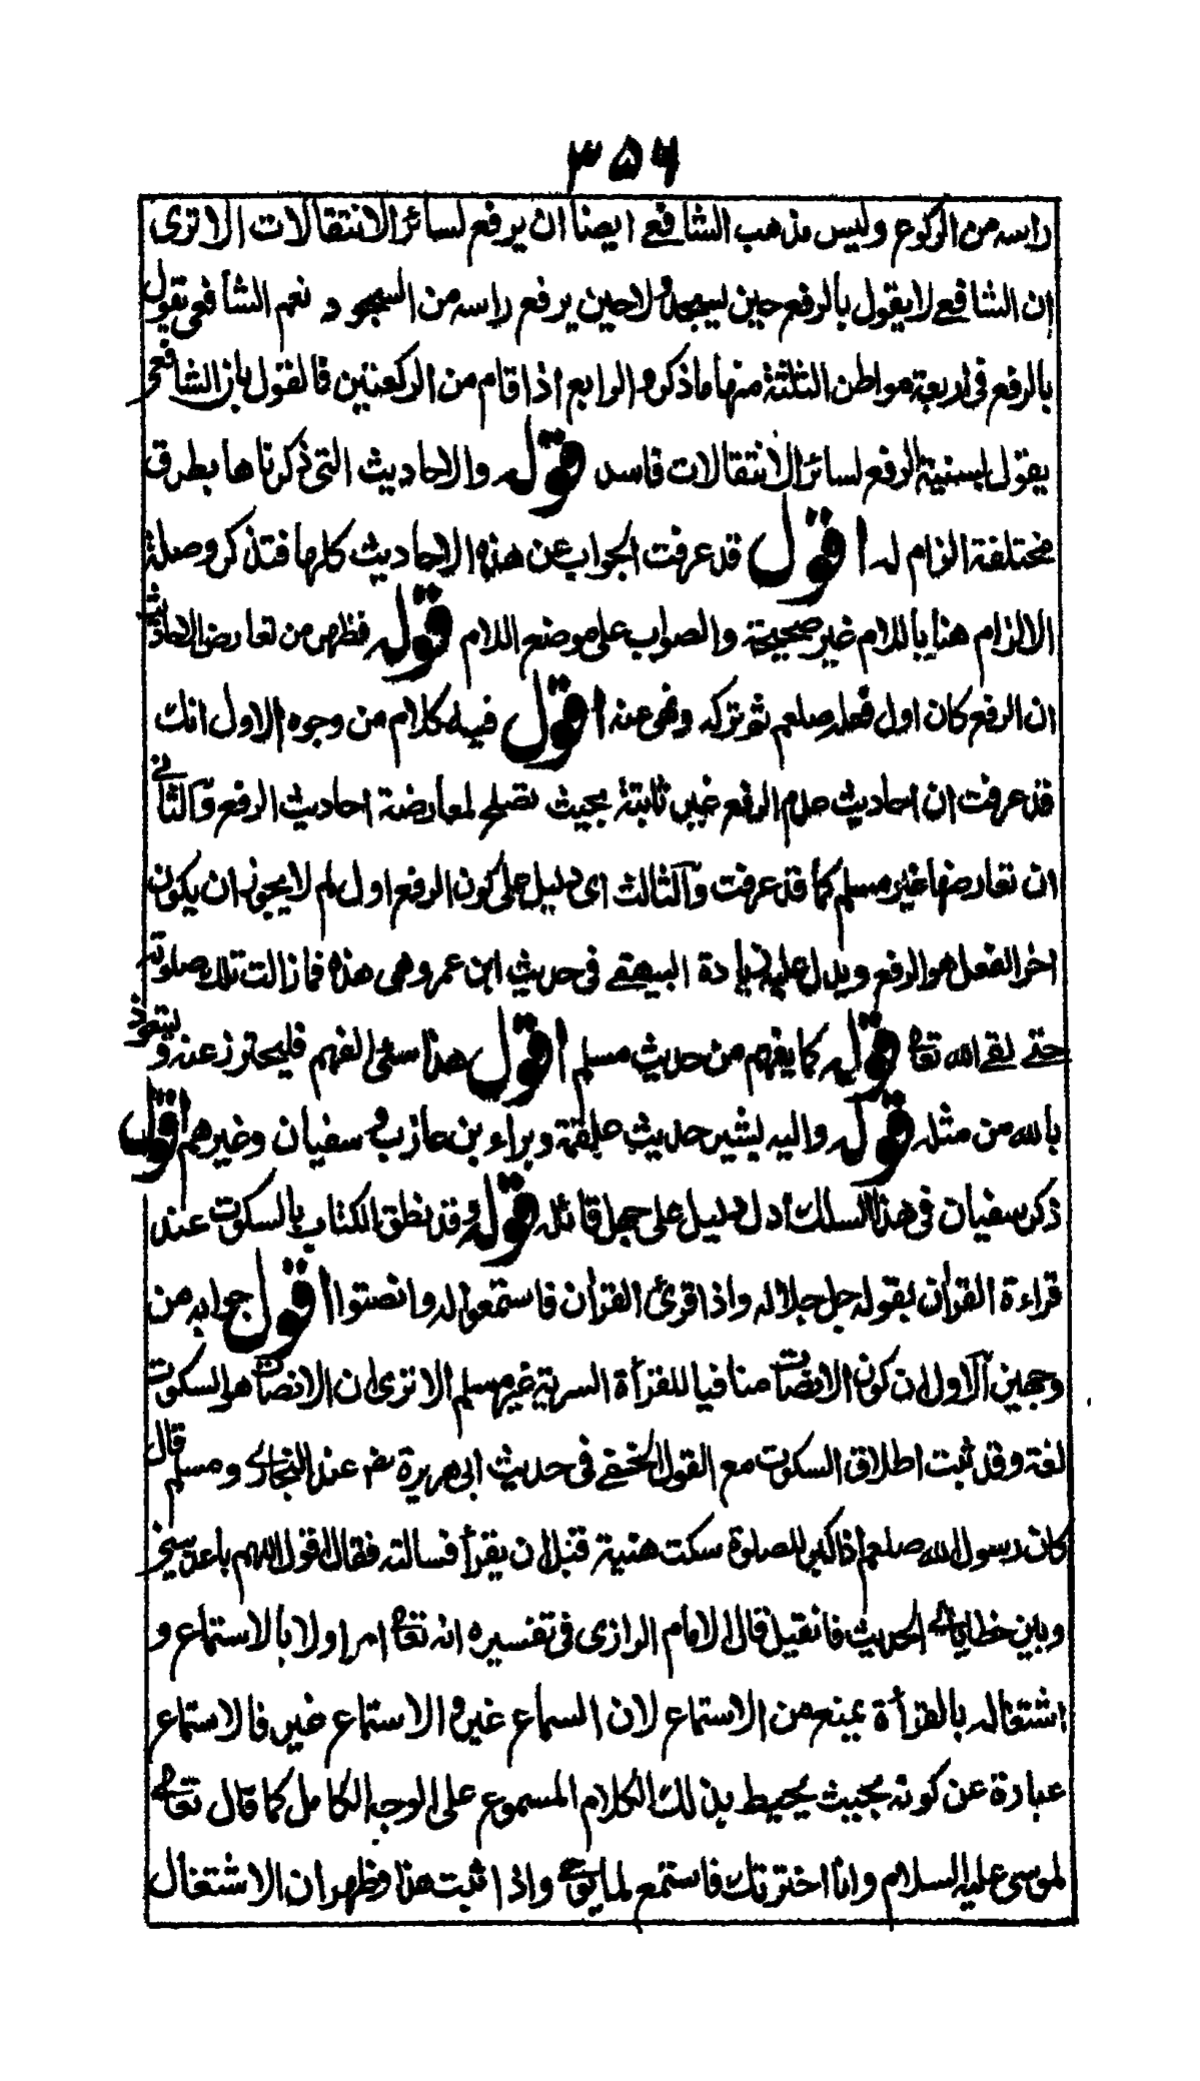 ۳۵۶
راسه من الركوع وليس مذهب الشافعے ايضا ان يرفع لسائر الانتقالات الا ترى
ان الشافعے لا يقول بالرفع حين يسجد ولا حين يرفع راسه من السجود نعم الشافعى يقول
بالرفع فى اربعة مواطن الثلثة منها ما ذكر و الرابع اذا قام من الركعتين فالقول بان الشافعى
يقول بسنية الرفع لسائر الانتقالات فاسد قوله والاحاديث التى ذكرناها بطرق
مختلفة الزام له اقول قد عرفت الجواب عن هذه الاحاديث كلها فتذكر وصلة
الالزام هنا باللام غير صحيحة والصواب على موضع اللام قوله فظهر من تعارض الاحاديث
ان الرفع كان اول فعله صلعم ثم تركه ونهى عنه اقول فيه كلام من وجوه الاول انك
قد عرفت ان احاديث عدم الرفع غير ثابتة بحيث تصلح لمعارضة احاديث الرفع والثانے
ان تعارضها غير مسلم كما قد عرفت والثالث اى دليل على كون الرفع اول لم لا يجوز ان يكون
اخر الفعل هو الرفع ويدل عليه زيادة البيهقے فى حديث ابن عمر وهى هذه فما زالت تلك صلوته
حتے لقے الله تعالى قوله كما يفهم من حديث مسلم اقول هذا سئ الفهم فليحترز عنه وليتعوذ
بالله من مثله قوله واليه يشير حديث علقمة وبراء بن عازب و سفيان وغيرهم اقول
ذكر سفيان فى هذا السلك ادل دليل على جهل قائله قوله وقد نطق الكتاب بالسكوت عند
قراءة القران بقوله جل جلاله واذا قرئ القران فاستمعوا له وانصتوا اقول جوابه من
وجهين الاول ان كون الانصات منافيا للقرأة السرية غير مسلم الا ترى ان الانصات هو السكوت
لغة وقد ثبت اطلاق السكوت مع القول الخفے فى حديث ابى هريرة رضـ عند البخارے ومسلم قال
كان رسول الله صلعم اذا كبر للصلوة سكت هنية قبل ان يقرأ فسالته فقال اقول اللهم باعد بينى
وبين خطاياے الحديث فان قيل قال الامام الرازى فى تفسيره انه تعالى امر اولا بالاستماع و
اشتغاله بالقرأة يمنع من الاستماع لان السماع غير و الاستماع غير فالاستماع
عبارة عن كونه بحيث يحيط بذلك الكلام المسموع على الوجه الكامل كما قال تعالى
لموسى عليه السلام وانا اخترتك فاستمع لما يوحے واذا ثبت هذا فظهر ان الاشتغال